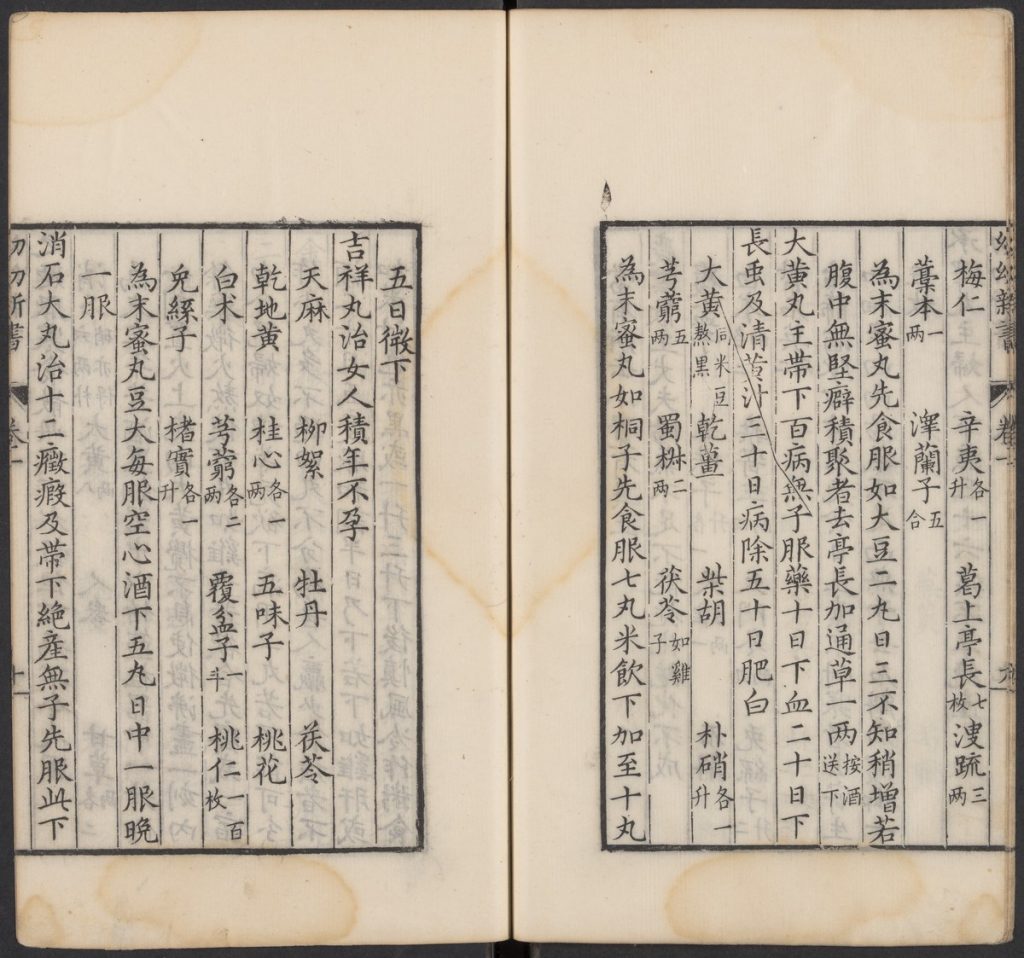 梅仁 辛夷各一升 葛上亭長七枚 溲疏三两
藁本一两 澤蘭子五合
為末蜜丸先食服如大豆二丸日三不知稍增若
腹中無堅癖積聚者去亭長加通草一两按酒送下
大黄丸主帶下百病無子服藥十日下血二十日下
長虫及清黄汁三十日病除五十日肥白
大黄同米豆熬黒 乾薑 柴胡 朴硝各一升
芎藭五两 蜀椒二两 茯苓如雞子
為末蜜丸如桐子先食服七丸米飲下加至十丸
五日微下
吉祥丸治女人積年不孕
天麻 柳絮 牡丹 茯苓
乾地黄 桂心各一两 五味子 桃花
白术 芎藭各二两 覆盆子一斗 桃仁一百枚
兔絲子 楮實各一升
為末蜜丸豆大每服空心酒下五丸日中一服晚
一服
消石大丸治十二癥瘕及帶下絶産無子先服此下